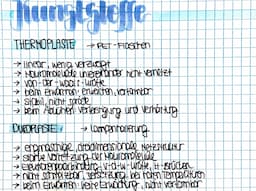 Kunststoffe
THERMOPLASTE → PET-Flaschen
→ linear, wenig verzweigt
→ Makromoleküle untereinander nicht vernetzt
→ Van-der-Waals-Kräfte
→ beim Erwärmen: erweichen, verformbar
→ stabil, nicht spröde
→ beim Abkühlen: Verfestigung und Verhärtung
DUROPLASTE →
→ engmaschige, dreidimensionale Netzstruktur
→ starke Vernetzung der Makromoleküle
→ v-d-w-Kräfte, H-Brücken
→ nicht schmelzbar, Zersetzung bei hohen Temperaturen
→ beim Erwärmen: keine Erweichung, nicht verformbar